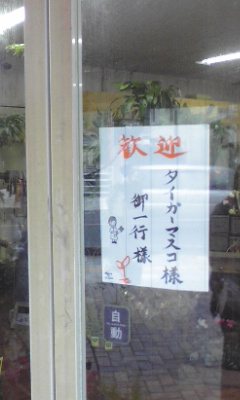 歓迎
タイガーマスコ様
御一行様
自動